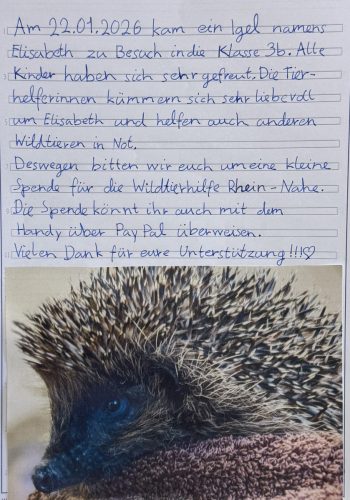 Am 22.01.2026 kam ein Igel namens
Elisabeth zu Besuch in die Klasse 3b. Alle
Kinder haben sich sehr gefreut. Die Tier-
helferinnen kümmern sich sehr liebevoll
um Elisabeth und helfen auch anderen
Wildtieren in Not.
Deswegen bitten wir euch um eine kleine
Spende für die Wildtierhilfe Rhein-Nahe.
Die Spende könnt ihr auch mit dem
Handy über PayPal überweisen.
Vielen Dank für eure Unterstützung!!!♡